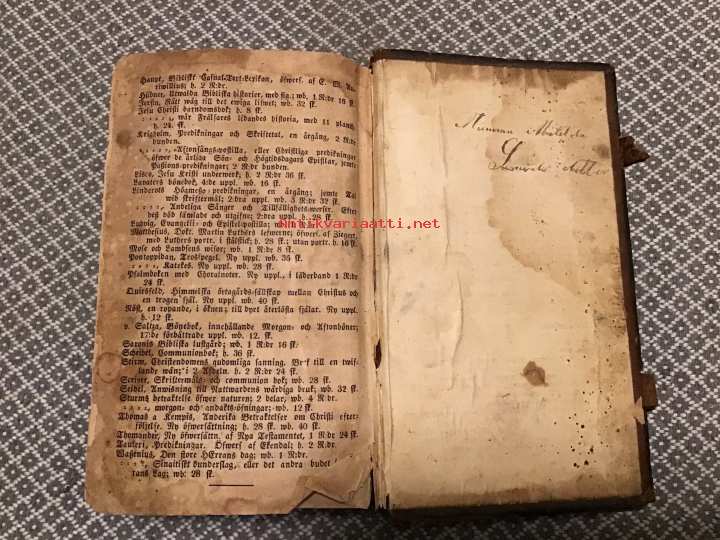 Haupt, Bibliskt Casual-Text-Lexikon, öfwers. af E. W.
riwillius; h. 2 R:dr.
Hübner, Utwalda Bibliska historier, med fig.; wb. 1 R:dr 16 sk.
Jersin, Rätt wäg till det ewiga lifwet; wb. 32 sk.
Jesu Christi barndomsbok; h. 8 sk.
wår Frälsares lidandes historia, med 11 planch.
h. 24 sk.
Predikningar och Skriftetal, en årgång, 2 R:dr
bunden.
Aftonsångs-postilla, eller Christliga predikningar
öfwer de årliga Sön- och Högtidsdagars Epistlar, jemte
Passions-predikningar; 2 R:dr bunden.
Lisco, Jesu Kristi underwerk; h. 2 R:dr 36 sk.
Lavaters bönebok, 4:de uppl. wb. 16 sk.
Linderots Högmesso-predikningar, en årgång; jemte Tal
wid skriftermål; 2:dra uppl. wb. 3 R:dr 32 sk.
Andeliga Sånger och Tillfällighets-werser. Efter
dess död samlade och utgifne; 2:dra uppl. h. 28 sk.
Ludvig, Evangelii- och Epistel-postilla;
Mathesius, Dokt. Martin Luthers lefwerne; öfwers. af Ziegler,
med Luthers portr. i stålstick; h. 28 sk.; utan portr. h. 16 sk.
Mose och Lambsens wisor; wb. 1 R:dr 8 sk.
Pontoppidan, Tros-spegel. Ny uppl. wb. 36 sk.
Katekes. Ny uppl. wb. 28 sk.
Psalmboken med Choralnoter. Ny uppl., i läderband 1 R:dr
24 sk.
Quirsfeld, Himmelska örtagårds-sällskap mellan Christus och
en trogen själ. Ny uppl. wb. 40 sk.
Röst, en ropande, i öknen; till dyrt återlösta själar. Ny uppl.
h. 12 sk.
v. Saltza, Bönebok, innehållande Morgon- och Aftonböner;
17:de förbättrade uppl. wb. 12. sk.
Sarons Bibliska lustgård; wb. 1 R:dr 16 sk.
Scheibel, Communionbok; h. 36 sk.
Stirm, Christendomens gudomliga sanning. Bref till en twif-
lande wän; i 2 Afdeln. h. 2 R:dr 24 sk.
Scriver, Skriftermåls- och communion bok; wb. 28 sk.
Seidel, Anwisning till Nattwardens wärdiga bruk; wb. 32 sk.
Sturms betraktelse öfwer naturen; 2 delar, wb. 4 R:dr.
morgon- och andakts-öfningar; wb. 12 sk.
Thomas a Kempis, Anderika Betraktelser om Christi efter-
följelse. Ny öfwersättning; h. 28 sk. wb. 40 sk.
Thomander, Ny öfwersättn. af Nya Testamentet, 1 R:dr 24 sk.
Tauleri, Predikningar. Öfwers. af Ekendal; h. 2 R:dr.
Wasenius, Den store HErrans dag; wb. 1 R:dr.
Sinaitiskt dunderslag, eller det andra budet
rans Lag; wb. 28 sk.
nmt.kvariaatti.net